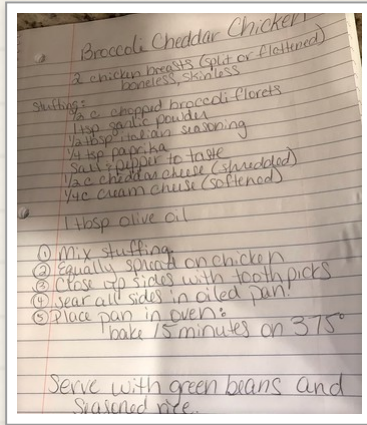 Broccoli Cheddar Chicken
2 chicken breasts (split or flattened)
boneless, skinless
Stuffing:
1/2 c. chopped broccoli florets
1 tsp garlic powder
1/2 tbsp italian seasoning
1/4 tsp paprika
Salt & pepper to taste
1/2 c cheddar cheese (shredded)
1/4 c cream cheese (softened)
1 tbsp olive oil
① Mix stuffing.
② Equally spread on chicken
③ Close up sides with toothpicks
④ Sear all sides in oiled pan.
⑤ Place pan in oven:
bake 15 minutes on 375°
Serve with green beans and
Seasoned rice.